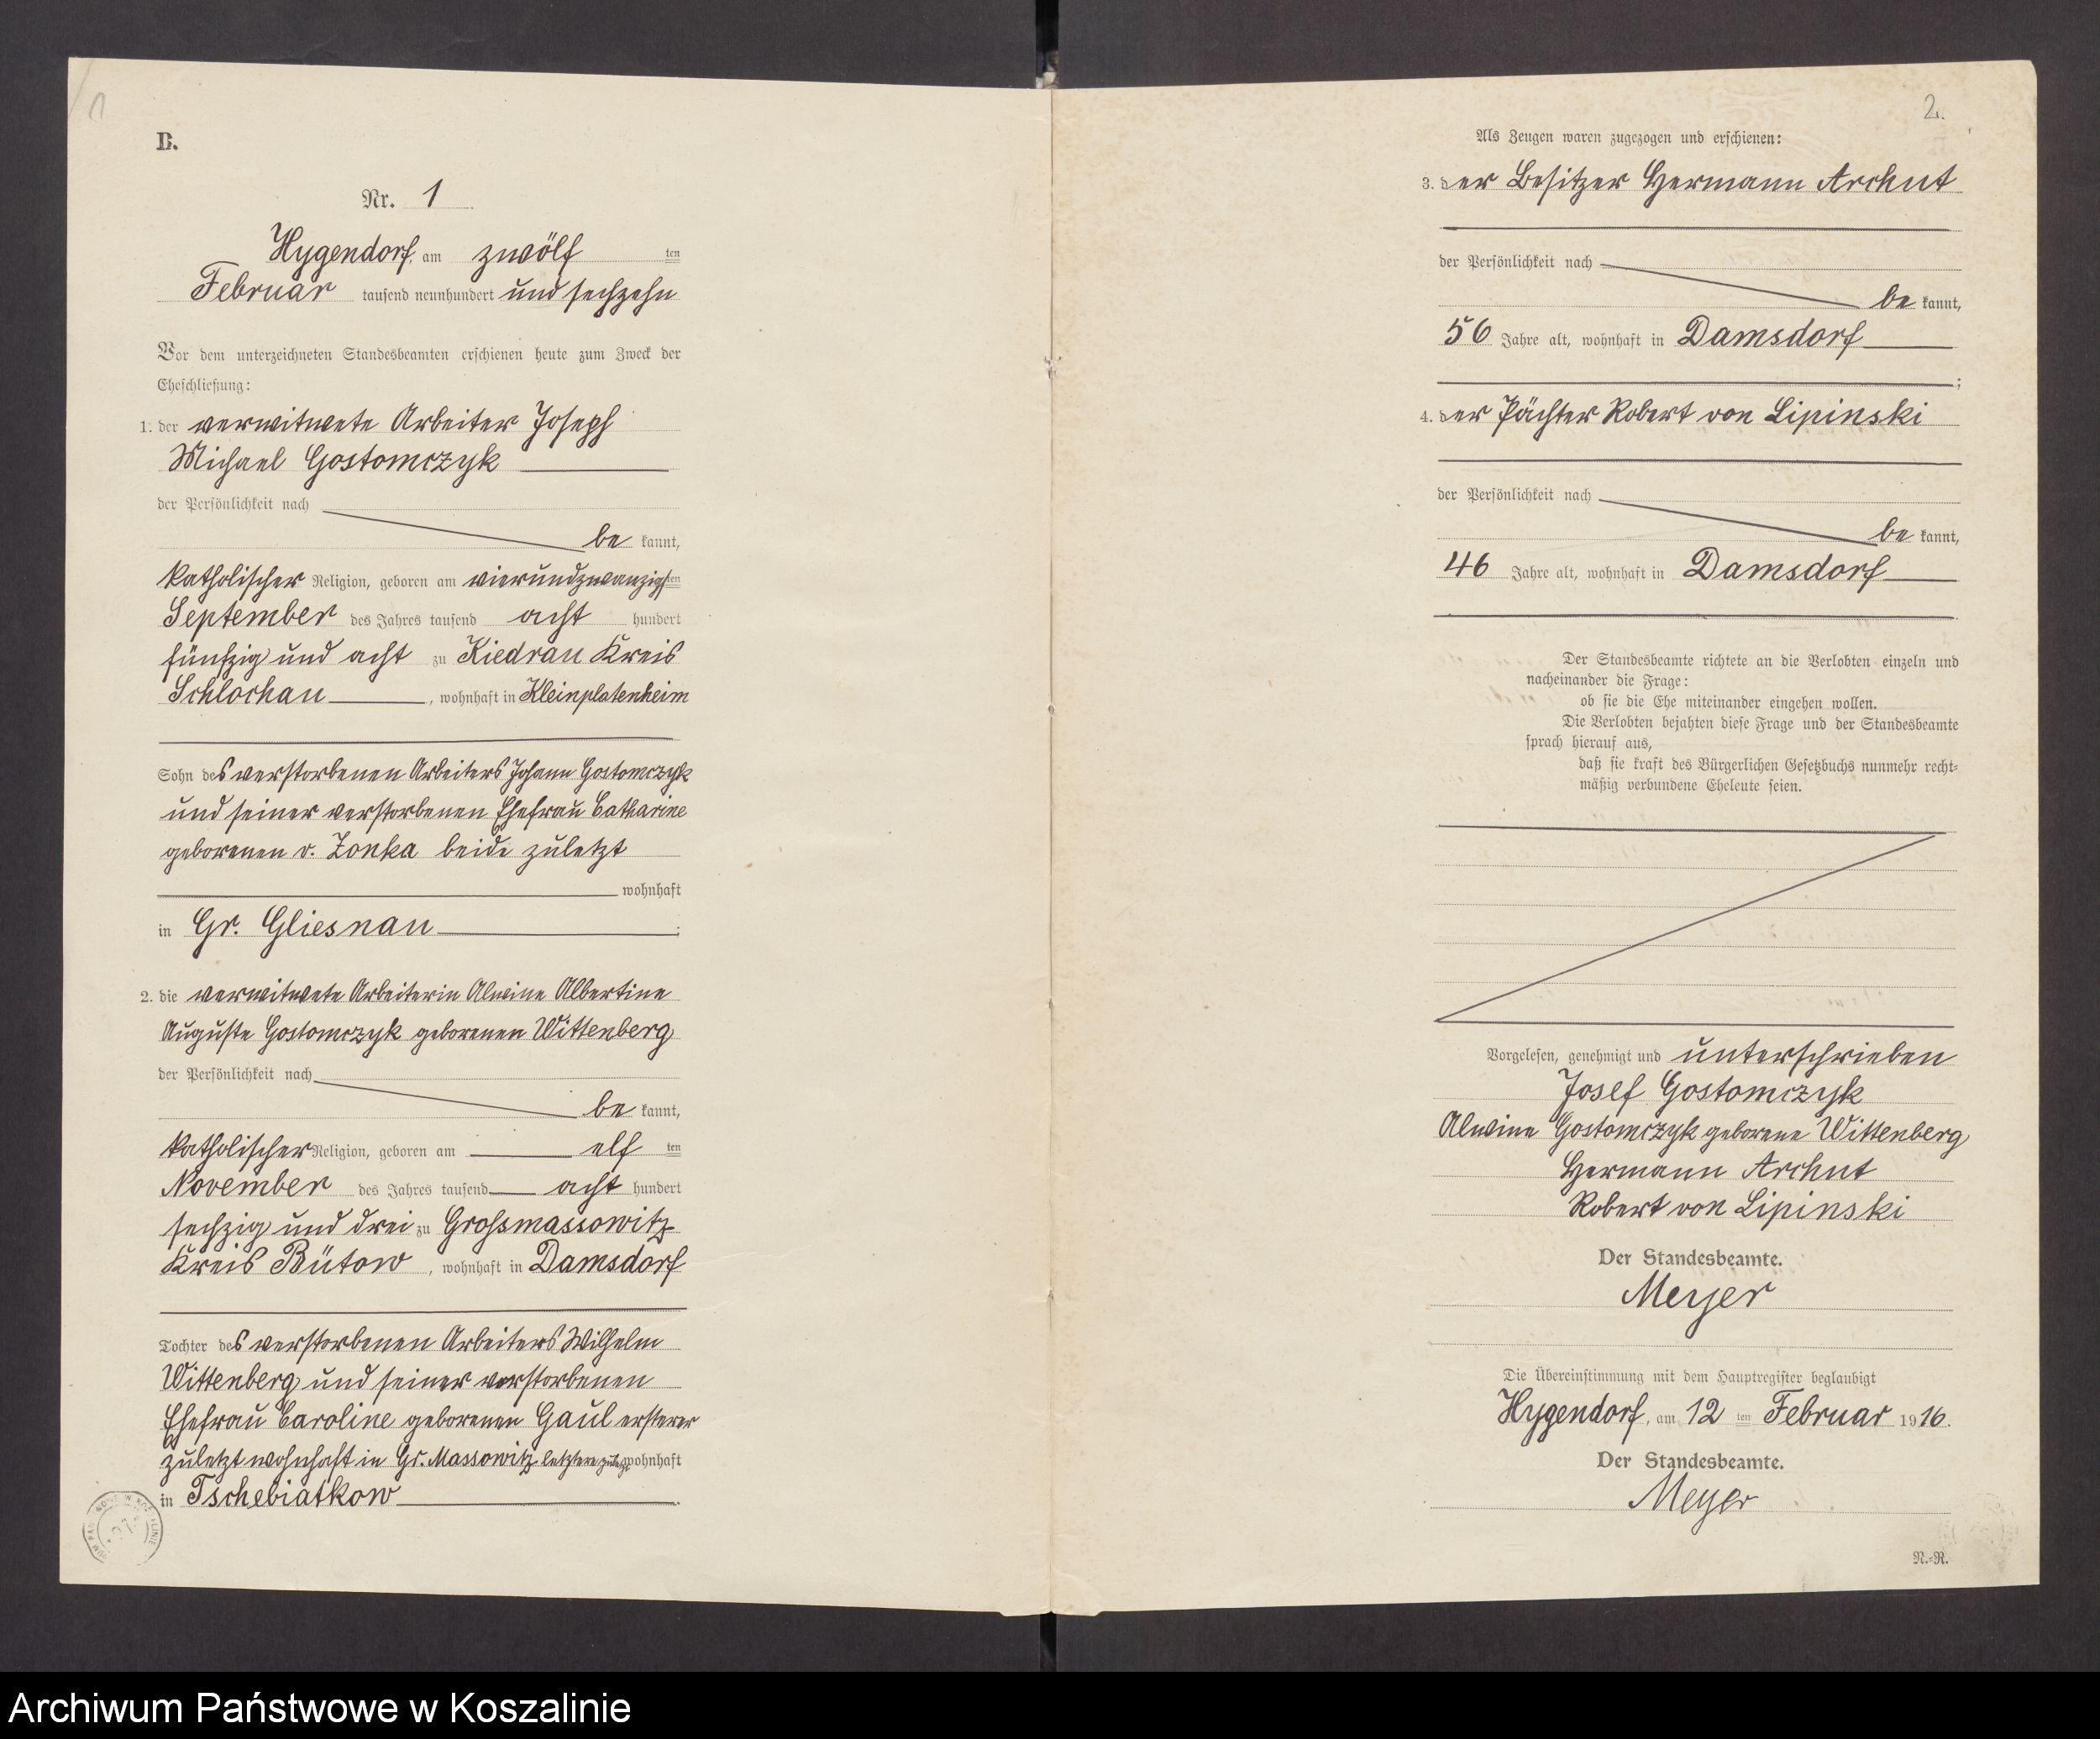 1
B.
Nr. 1
Hygendorf, am zwölf ten
Februar tausend neunhundert und sechzehn
Vor dem unterzeichneten Standesbeamten erschienen heute zum Zweck der
Eheschließung:
1. der verwitwete Arbeiter Joseph
Michael Gostomczyk
der Persönlichkeit nach
be kannt,
katholischer Religion, geboren am vierundzwanzigsten
September des Jahres tausend acht hundert
fünfzig und acht zu Kiedrau Kreis
Schlochau, wohnhaft in Kleinplatenheim
Sohn des verstorbenen Arbeiters Johann Gostomczyk
und seiner verstorbenen Ehefrau Catharine
geborenen v. Zonka beide zuletzt
wohnhaft
in Gr. Gliesnau;
2. die verwitwete Arbeiterin Alwine Albertine
Auguste Gostomczyk geborenen Wittenberg
der Persönlichkeit nach
be kannt,
katholischer Religion, geboren am elf ten
November des Jahres tausend acht hundert
sechzig und drei zu Grossmassowitz
Kreis Bütow, wohnhaft in Damsdorf
Tochter des verstorbenen Arbeiters Wilhelm
Wittenberg und seiner verstorbenen
Ehefrau Caroline geborenen Gaul ersterer
zuletzt wohnhaft in Gr. Massowitz letztere zuletzt wohnhaft
in Tschebiatkow.
2.
Als Zeugen waren zugezogen und erschienen:
3. der Besitzer Hermann Archut
der Persönlichkeit nach
be kannt,
56 Jahre alt, wohnhaft in Damsdorf
;
4. der Pächter Robert von Lipinski
der Persönlichkeit nach
be kannt,
46 Jahre alt, wohnhaft in Damsdorf
Der Standesbeamte richtete an die Verlobten einzeln und
nacheinander die Frage:
ob sie die Ehe miteinander eingehen wollen.
Die Verlobten bejahten diese Frage und der Standesbeamte
sprach hierauf aus,
daß sie kraft des Bürgerlichen Gesetzbuchs nunmehr recht-
mäßig verbundene Eheleute seien.
Vorgelesen, genehmigt und unterschrieben
Josef Gostomczyk
Alwine Gostomczyk geborene Wittenberg
Hermann Archut
Robert von Lipinski
Der Standesbeamte.
Meyer
Die Übereinstimmung mit dem Hauptregister beglaubigt
Hygendorf, am 12 ten Februar 1916.
Der Standesbeamte.
Meyer
N.-R.
Archiwum Państwowe w Koszalinie